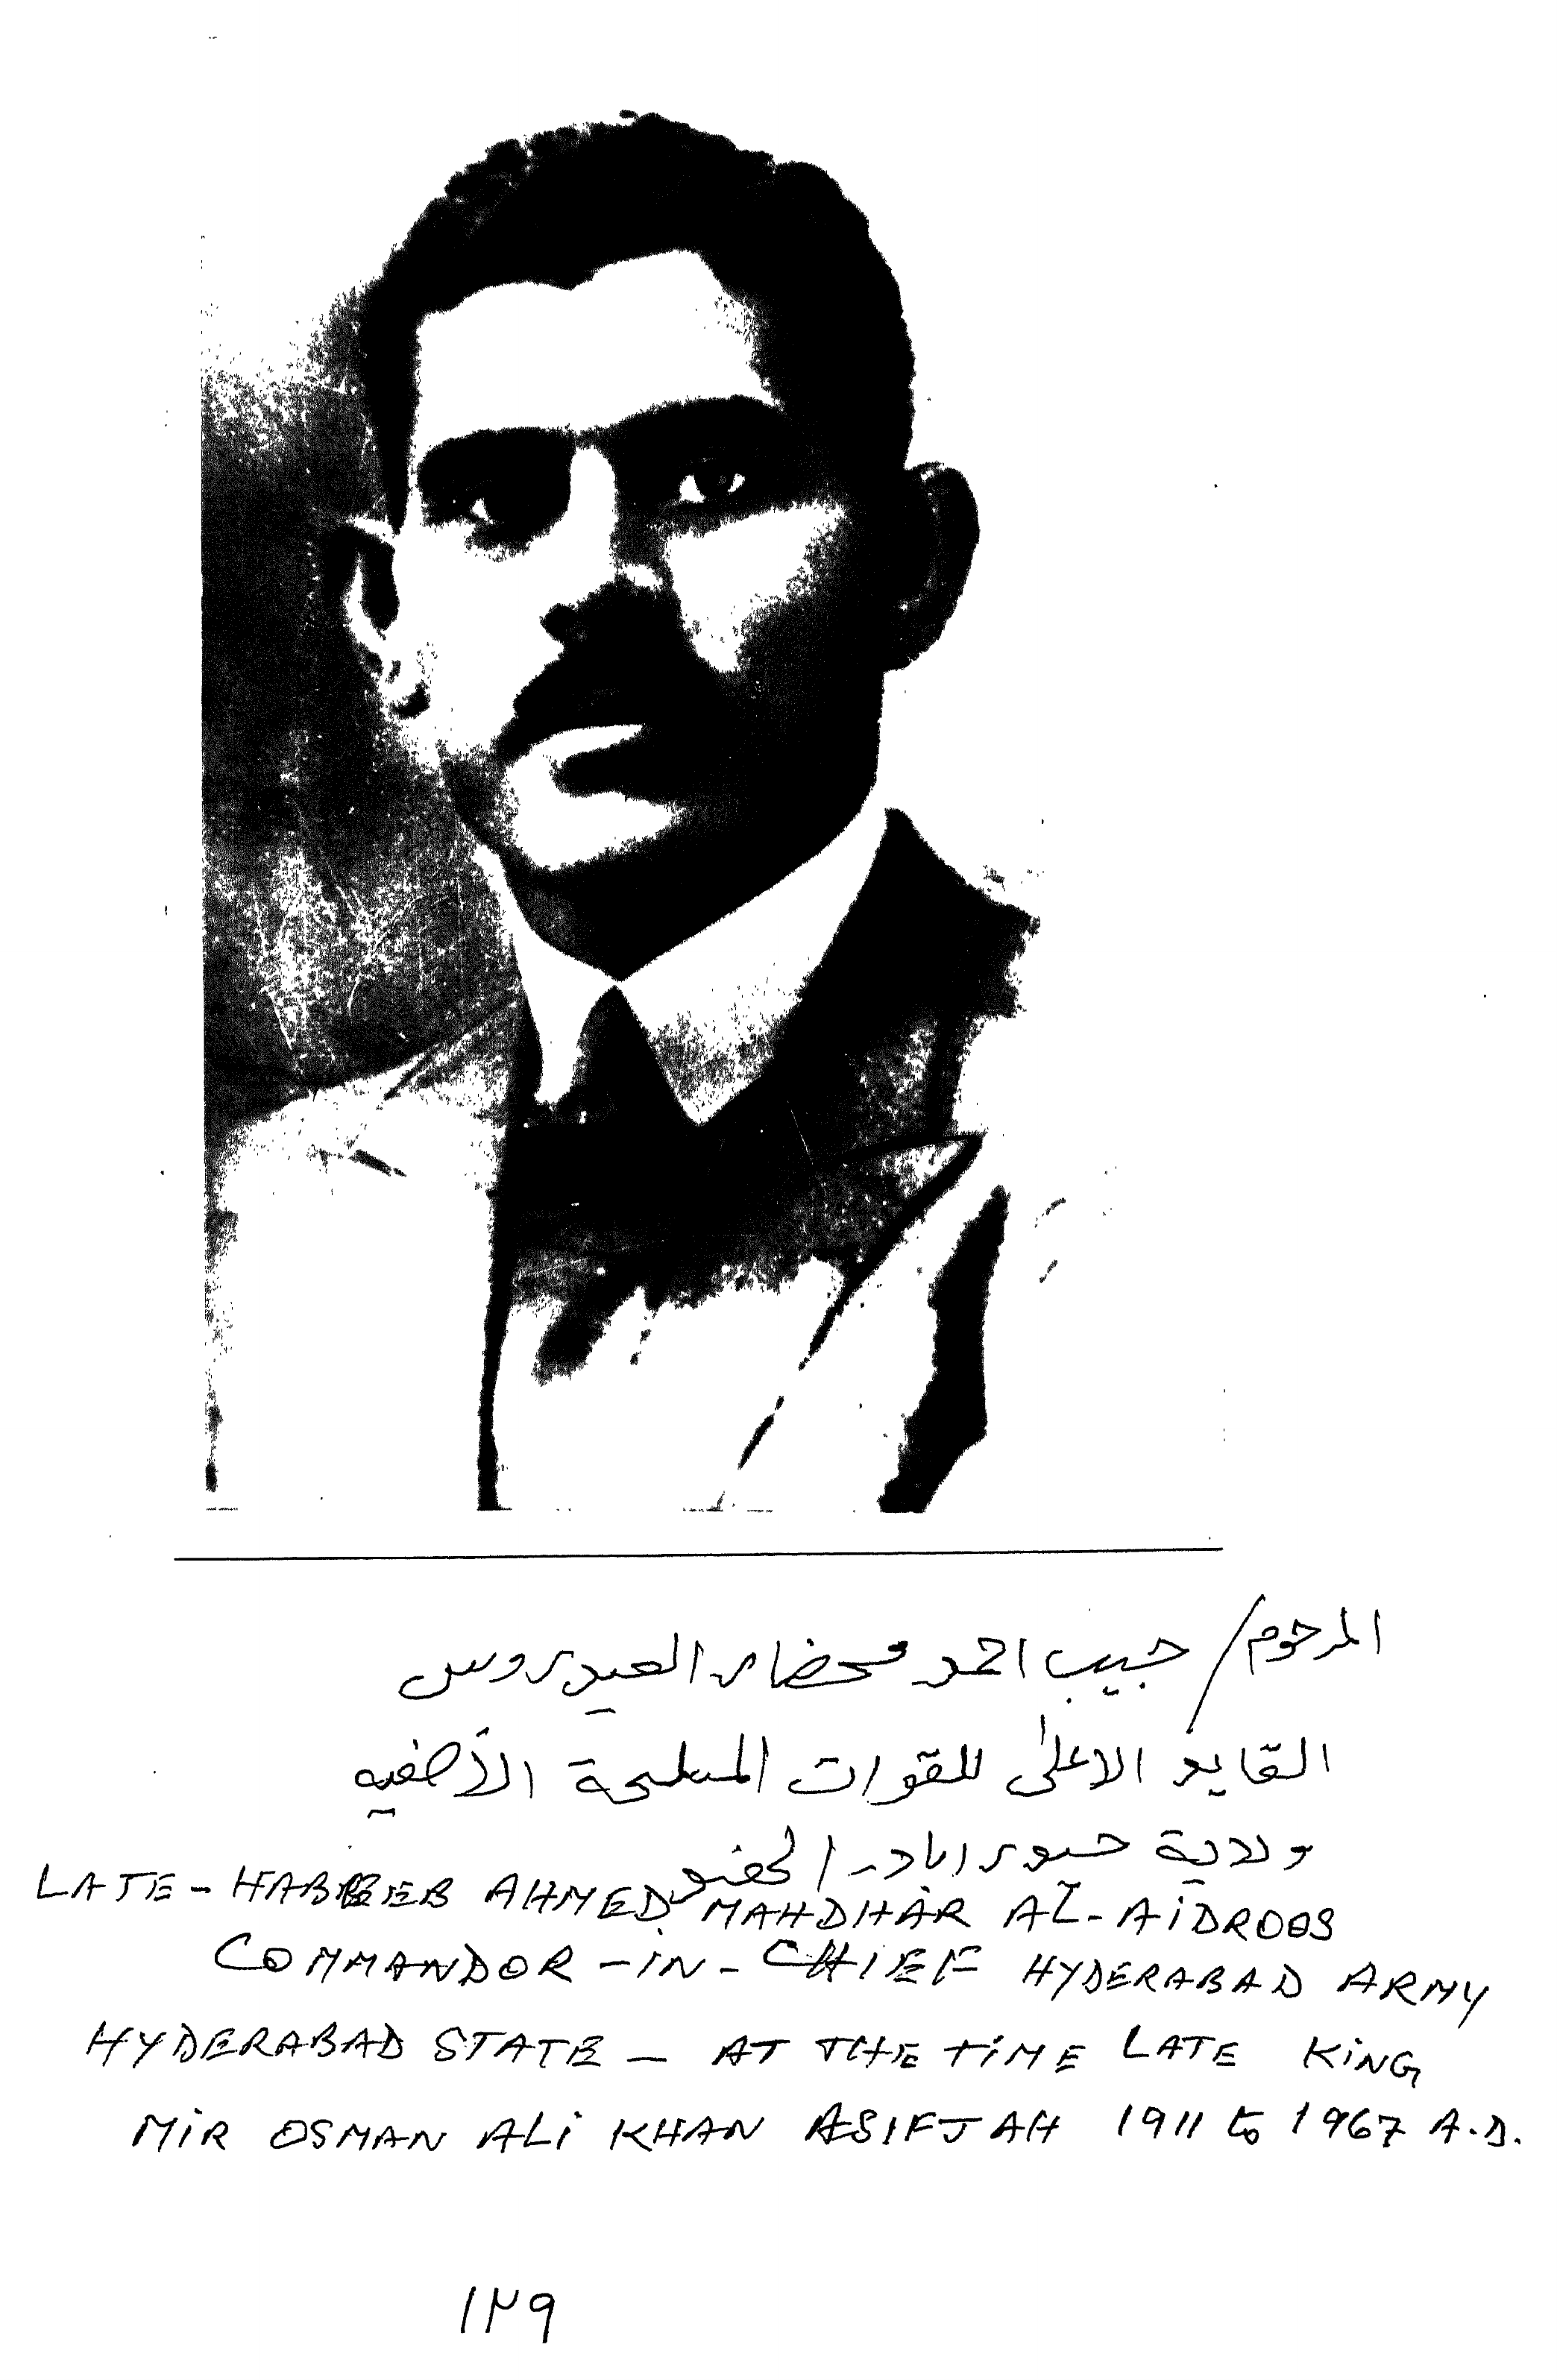 المرحوم / حبيب احمد محضار العيدروس
القايد الاعلى للقوات المسلحة الآصفيه
ولاية حيدراباد - الهند
LATE - HABEEB AHMED MAHDHAR AL-AIDROOS
COMMANDOR - IN - CHIEF HYDERABAD ARMY
HYDERABAD STATE - AT THE TIME LATE KING
MIR OSMAN ALI KHAN ASIFJAH 1911 to 1967 A.D.
١٢٩